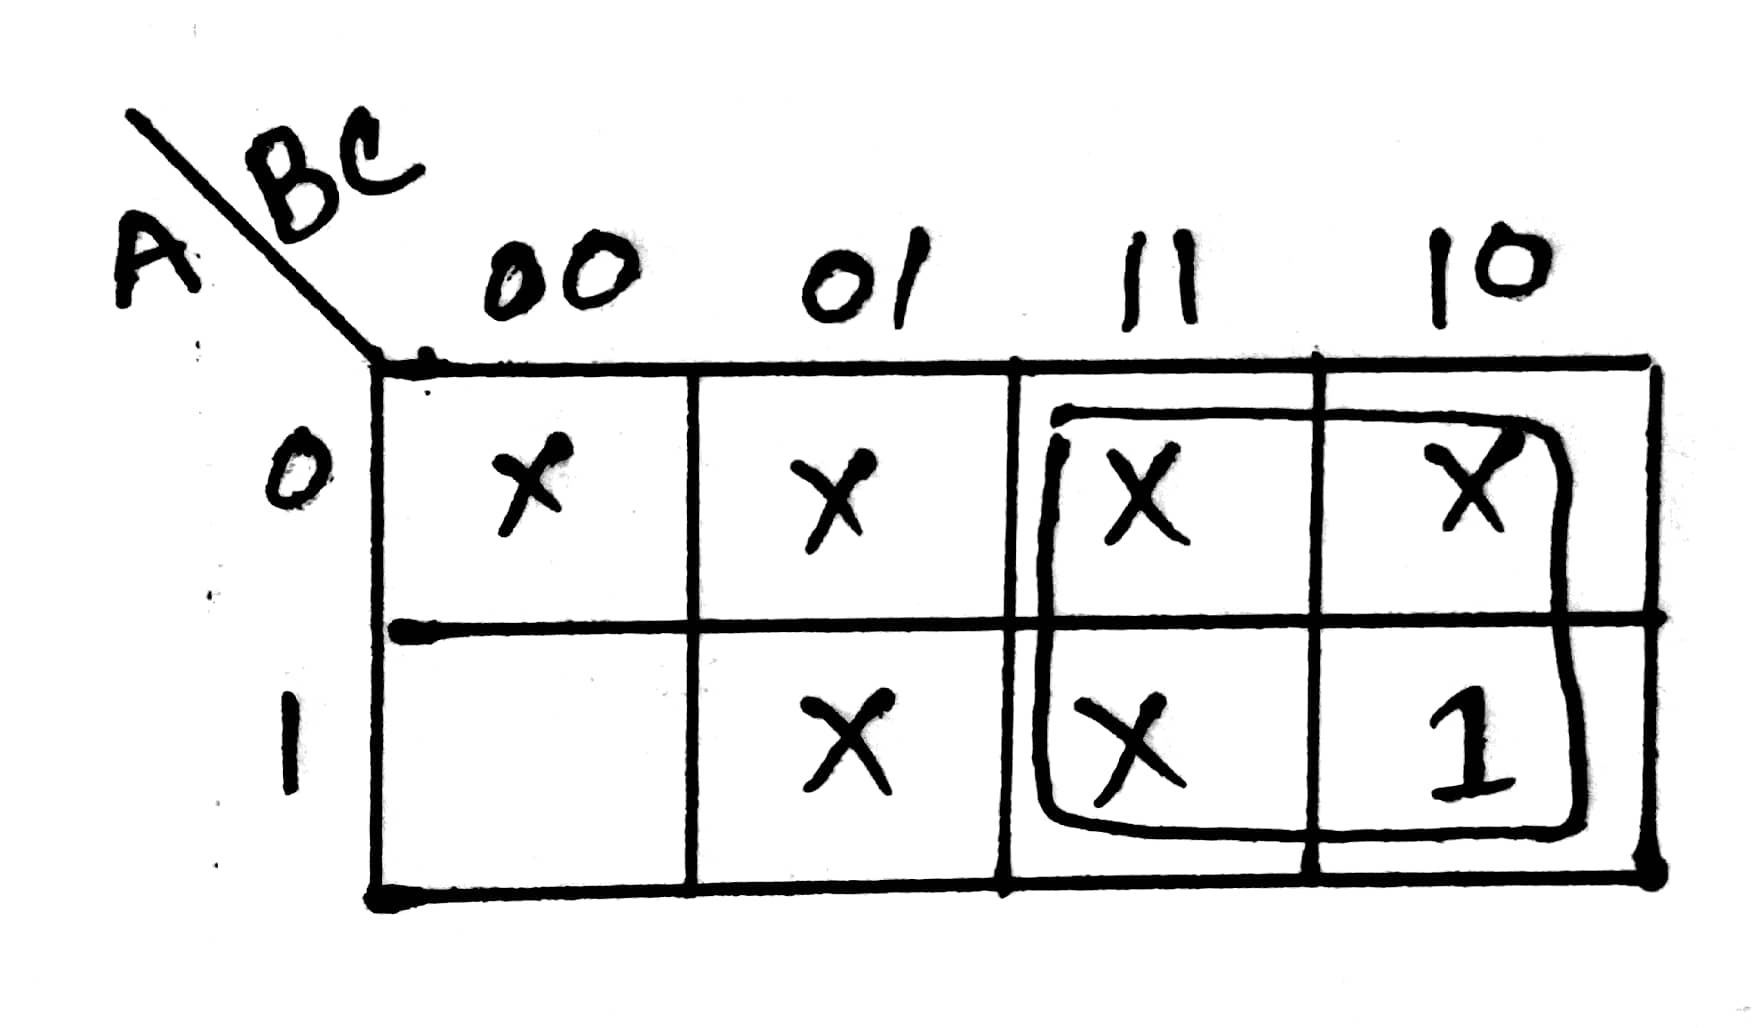 A BC
00 01 11 10
0 X X X X
1 X X 1